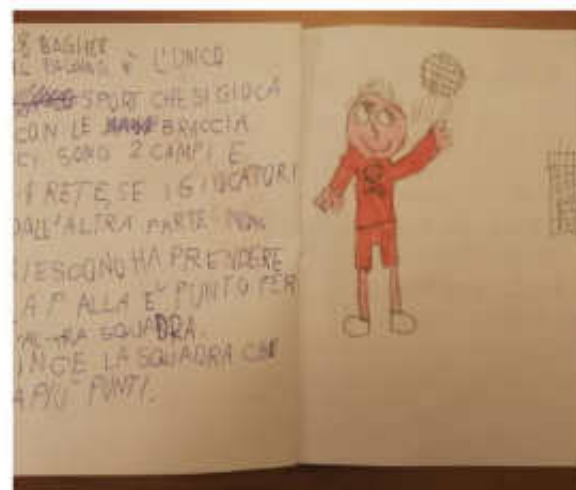 BAGHER
IL È L'UNICO
SPORT CHE SI GIOCA
CON LE BRACCIA
CI SONO 2 CAMPI E
RETE, SE I GIOCATORI
DALL'ALTRA PARTE NON
RIESCONO HA PRENDERE
LA PALLA È PUNTO PER
L'ALTRA SQUADRA.
VINCE LA SQUADRA CHE
HA PIÙ PUNTI.